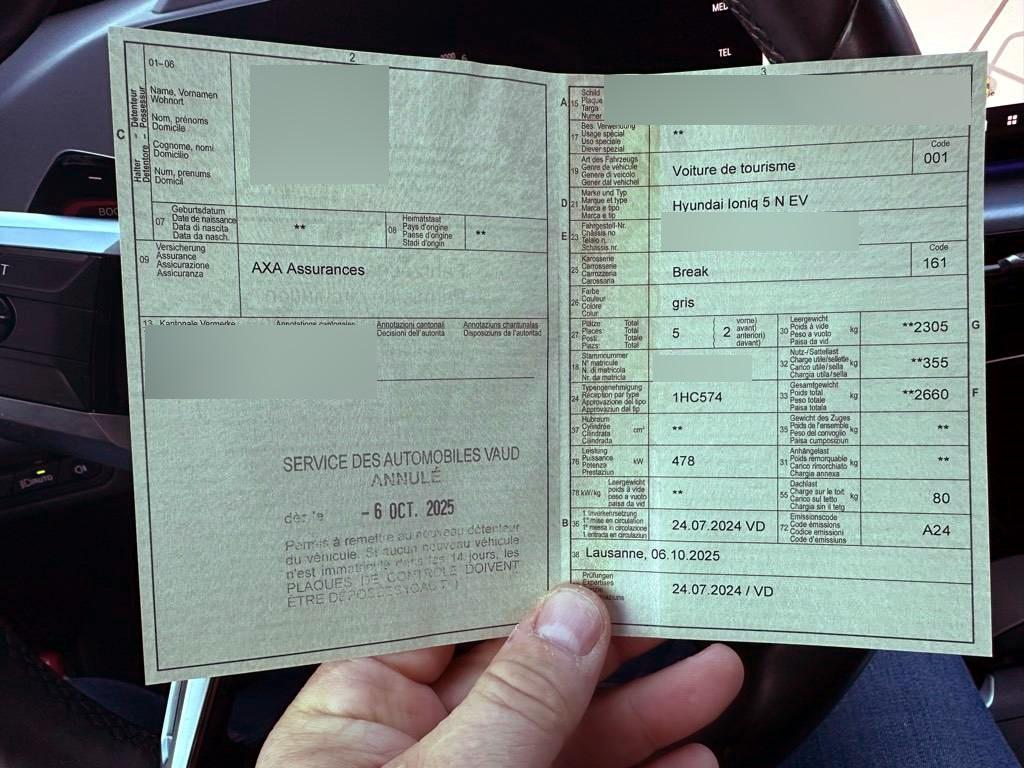 MED
TEL
2
01–06
Halter
Détenteur
Detentore
Possessur
C
Name, Vornamen
Wohnort
Nom, prénoms
Domicile
Cognome, nomi
Domicilio
Num, prenums
Domicil
07
Geburtsdatum
Date de naissance
Data di nascita
Data da nasch.
**
08
Heimatstaat
Pays d'origine
Paese d'origine
Stadi d'origin
**
09
Versicherung
Assurance
Assicurazione
Assicuranza
AXA Assurances
13 Kantonale Vermerke Annotations cantonales Annotazioni cantonali Annotaziuns chantunalas
Decisioni dell'autorità Disposiziuns da l'autoritad
SERVICE DES AUTOMOBILES VAUD
ANNULÉ
dès le - 6 OCT. 2025
Permis à remettre au nouveau détenteur
du véhicule. Si aucun nouveau véhicule
n'est immatriculé dans les 14 jours, les
PLAQUES DE CONTRÔLE DOIVENT
ÊTRE DÉPOSÉES
3
A 15
Schild
Plaque
Targa
Numer
17
Bes. Verwendung
Usage spécial
Uso speciale
Diever spezial
**
19
Art des Fahrzeugs
Genre de véhicule
Genere di veicolo
Gener dal vehichel
Voiture de tourisme
Code
001
D 21
Marke und Typ
Marque et type
Marca e tipo
Marca e tip
Hyundai Ioniq 5 N EV
E 23
Fahrgestell-Nr.
Châssis no
Telaio n.
Schassis nr.
25
Karosserie
Carrosserie
Carrozzeria
Carossaria
Break
Code
161
26
Farbe
Couleur
Colore
Colur
gris
27
Plätze Total
Places: Total
Posti: Totale
Plazs: Total
5
2
vorne)
avant)
anteriori)
davant)
30
Leergewicht
Poids à vide
Peso a vuoto
Paisa da vid
kg
**2305
G
18
Stammnummer
N° matricule
N. di matricola
Nr. da matricla
32
Nutz-/Sattellast
Charge utile/sellette
Carico utile/sella
Chargia utila/sella
kg
**355
24
Typengenehmigung
Réception par type
Approvazione del tipo
Approvaziun dal tip
1HC574
33
Gesamtgewicht
Poids total
Peso totale
Paisa totala
kg
**2660
F
37
Hubraum
Cylindrée
Cilindrata
Cilindrada
cm³
**
35
Gewicht des Zuges
Poids de l'ensemble
Peso del convoglio
Paisa cumposiziun
kg
**
76
Leistung
Puissance
Potenza
Prestaziun
kW
478
31
Anhängelast
Poids remorquable
Carico rimorchiato
Chargia annexa
kg
**
78 kW/kg
Leergewicht
poids à vide
peso a vuoto
paisa da vid
**
55
Dachlast
Charge sur le toit
Carico sul tetto
Chargia sin il tetg
kg
80
B 36
1. Inverkehrsetzung
1re mise en circulation
1a messa in circolazione
1. entrada en circulaziun
24.07.2024 VD
72
Emissionscode
Code émissions
Codice emissioni
Code d'emissiuns
A24
38 Lausanne, 06.10.2025
Prüfungen
Expertises
24.07.2024 / VD
AUTO